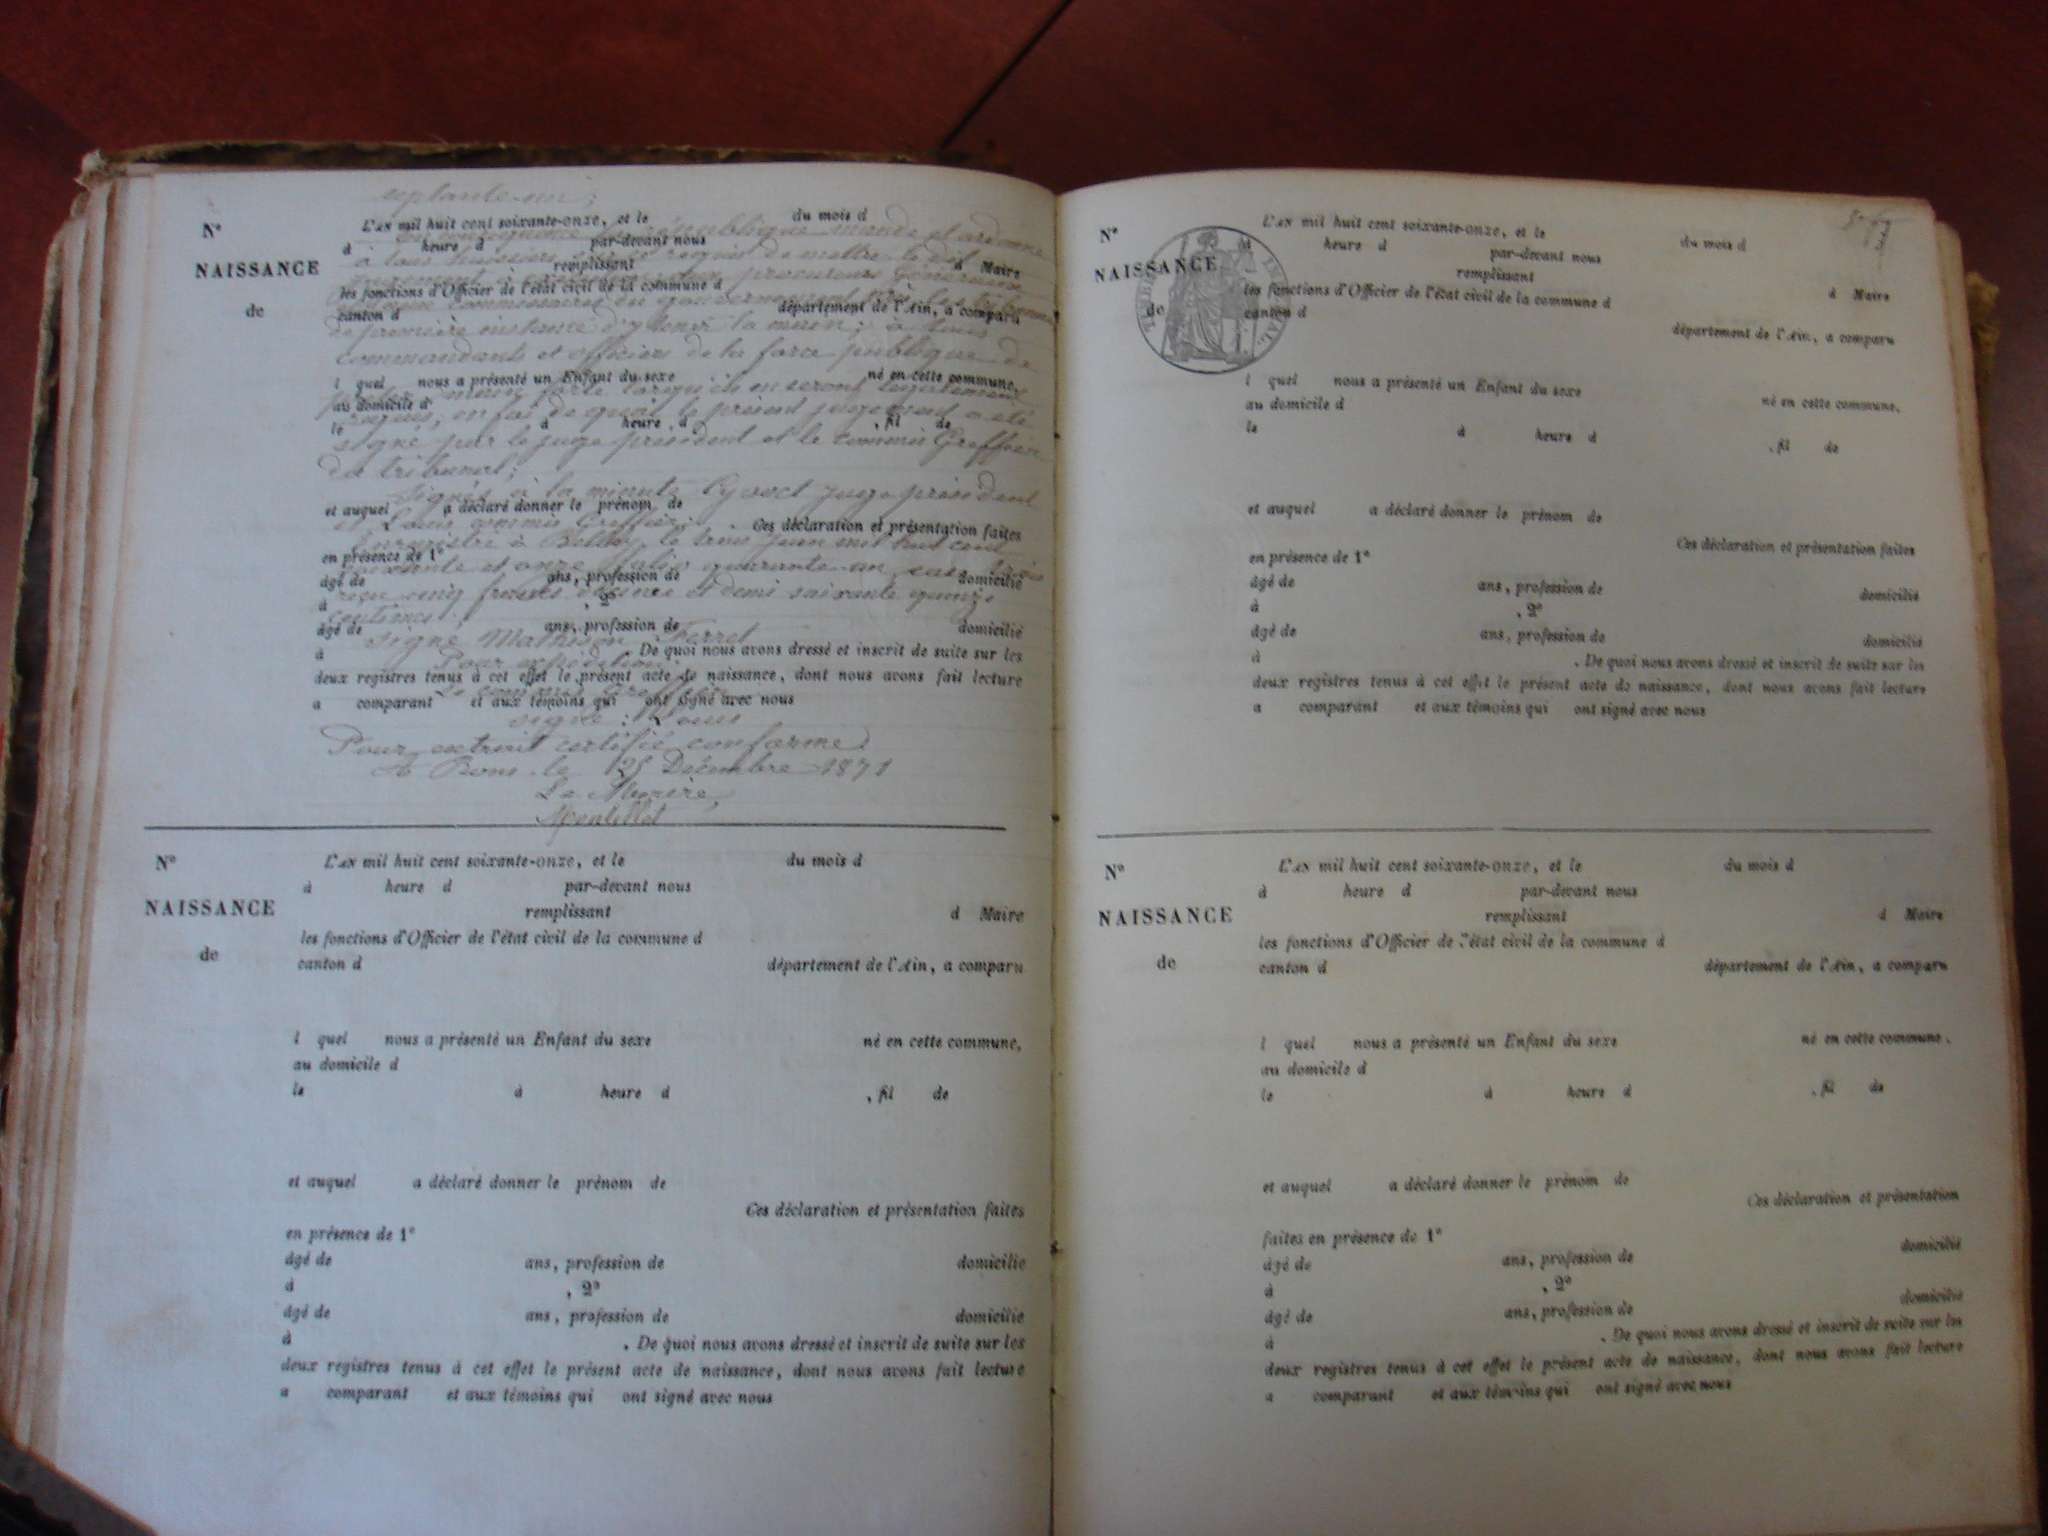 septante-un;
N°
NAISSANCE
de
L'AN mil huit cent soixante-onze, et le du mois d
En conséquence la république mande et ordonne
à heure d par-devant nous
à tous huissiers requis de mettre le dit
remplissant d Maire
jugement à exécution aux procureurs Généraux
les fonctions d'Officier de l'état civil de la commune d
commissaires du gouvernement
canton d département de l'Ain, a comparu
de première instance d'y tenir la main; à tous
commandants et officiers de la force publique de
l quel nous a présenté un Enfant du sexe né en cette commune,
prêter main forte lorsqu'ils en seront légalement
au domicile d
requis, en foi de quoi le présent jugement a été
le à heure d , fil de
signé par le juge président et le commis Greffier
du tribunal;
Signés à la minute juge président
et auquel a déclaré donner le prénom de
et Louis commis Greffier;
. Ces déclaration et présentation faites
Enregistré à Belley le trois juin mil huit cent
en présence de 1°
soixante et onze folio quarante un case trois
âgé de ans, profession de domicilié
reçu cinq francs décime et demi soixante quinze
à , 2°
centimes.
âgé de ans, profession de domicilié
Signé
à . De quoi nous avons dressé et inscrit de suite sur les
Pour expédition:
deux registres tenus à cet effet le présent acte de naissance, dont nous avons fait lecture
Le commis Greffier
a comparant et aux témoins qui ont signé avec nous
signé: Louis
Pour extrait certifié conforme
A Bons le 25 Décembre 1871
Le Maire,
Montillet
N°
NAISSANCE
de
L'AN mil huit cent soixante-onze, et le du mois d
à heure d par-devant nous
remplissant d Maire
les fonctions d'Officier de l'état civil de la commune d
canton d département de l'Ain, a comparu
l quel nous a présenté un Enfant du sexe né en cette commune,
au domicile d
le à heure d , fil de
et auquel a déclaré donner le prénom de
Ces déclaration et présentation faites
en présence de 1°
âgé de ans, profession de domicilié
à , 2°
âgé de ans, profession de domicilié
à . De quoi nous avons dressé et inscrit de suite sur les
deux registres tenus à cet effet le présent acte de naissance, dont nous avons fait lecture
a comparant et aux témoins qui ont signé avec nous
N°
NAISSANCE
de
L'AN mil huit cent soixante-onze, et le du mois d
à heure d par-devant nous
remplissant d Maire
les fonctions d'Officier de l'état civil de la commune d
canton d département de l'Ain, a comparu
l quel nous a présenté un Enfant du sexe né en cette commune,
au domicile d
le à heure d , fil de
et auquel a déclaré donner le prénom de
Ces déclaration et présentation faites
en présence de 1°
âgé de ans, profession de domicilié
à , 2°
âgé de ans, profession de domicilié
à . De quoi nous avons dressé et inscrit de suite sur les
deux registres tenus à cet effet le présent acte de naissance, dont nous avons fait lecture
a comparant et aux témoins qui ont signé avec nous
N°
NAISSANCE
de
L'AN mil huit cent soixante-onze, et le du mois d
à heure d par-devant nous
remplissant d Maire
les fonctions d'Officier de l'état civil de la commune d
canton d département de l'Ain, a comparu
l quel nous a présenté un Enfant du sexe né en cette commune,
au domicile d
le à heure d , fil de
et auquel a déclaré donner le prénom de
Ces déclaration et présentation
faites en présence de 1°
âgé de ans, profession de domicilié
à , 2°
âgé de ans, profession de domicilié
à . De quoi nous avons dressé et inscrit de suite sur les
deux registres tenus à cet effet le présent acte de naissance, dont nous avons fait lecture
a comparant et aux témoins qui ont signé avec nous